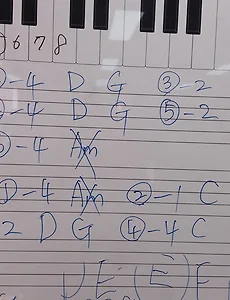 6 7 8
-4 D G ③-2
-4 D G ⑤-2
-4 Am
①-4 Am ②-1 C
2 D G ④-4 C
E (E) F